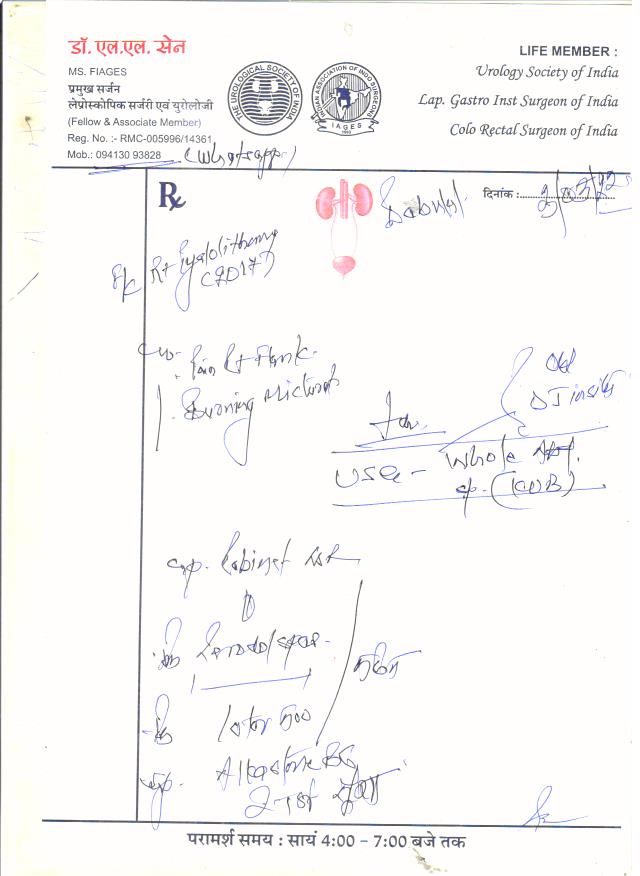 डॉ. एल.एल. सेन
MS. FIAGES
प्रमुख सर्जन
लेप्रोस्कोपिक सर्जरी एवं यूरोलोजी
(Fellow & Associate Member)
Reg. No. :- RMC-005996/14361
Mob.: 094130 93828 (Whatsapp)
THE UROLOGICAL SOCIETY OF INDIA
INDIAN ASSOCIATION OF
IAGES
LIFE MEMBER :
Urology Society of India
Lap. Gastro Inst Surgeon of India
Colo Rectal Surgeon of India
Rx
दिनांक :
Rt Pyelolithotomy
(2017)
Pain Rt Flank.
Burning Mict
Old
DJ insitu
Adv.
USG - Whole
(KUB)
Cap. Rabinet DSR
Zerodol
500
Alkastone B6
2 TSF
परामर्श समय : सायं 4:00 - 7:00 बजे तक